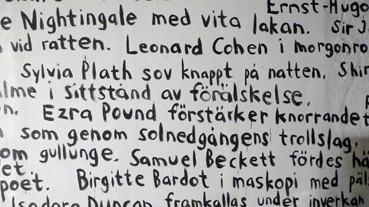 Ernst-Hugo
e Nightingale med vita lakan. Sir J
vid ratten. Leonard Cohen i morgonro
Sylvia Plath sov knappt på natten. Shir
lme i sittstånd av förälskelse.
n. Ezra Pound förstärker knorrandet
som genom solnedgångens trollslag,
om gullunge. Samuel Beckett fördes hä
et.
poet. Birgitte Bardot i maskopi med päl
Isadora Duncan framkallas under inverkan